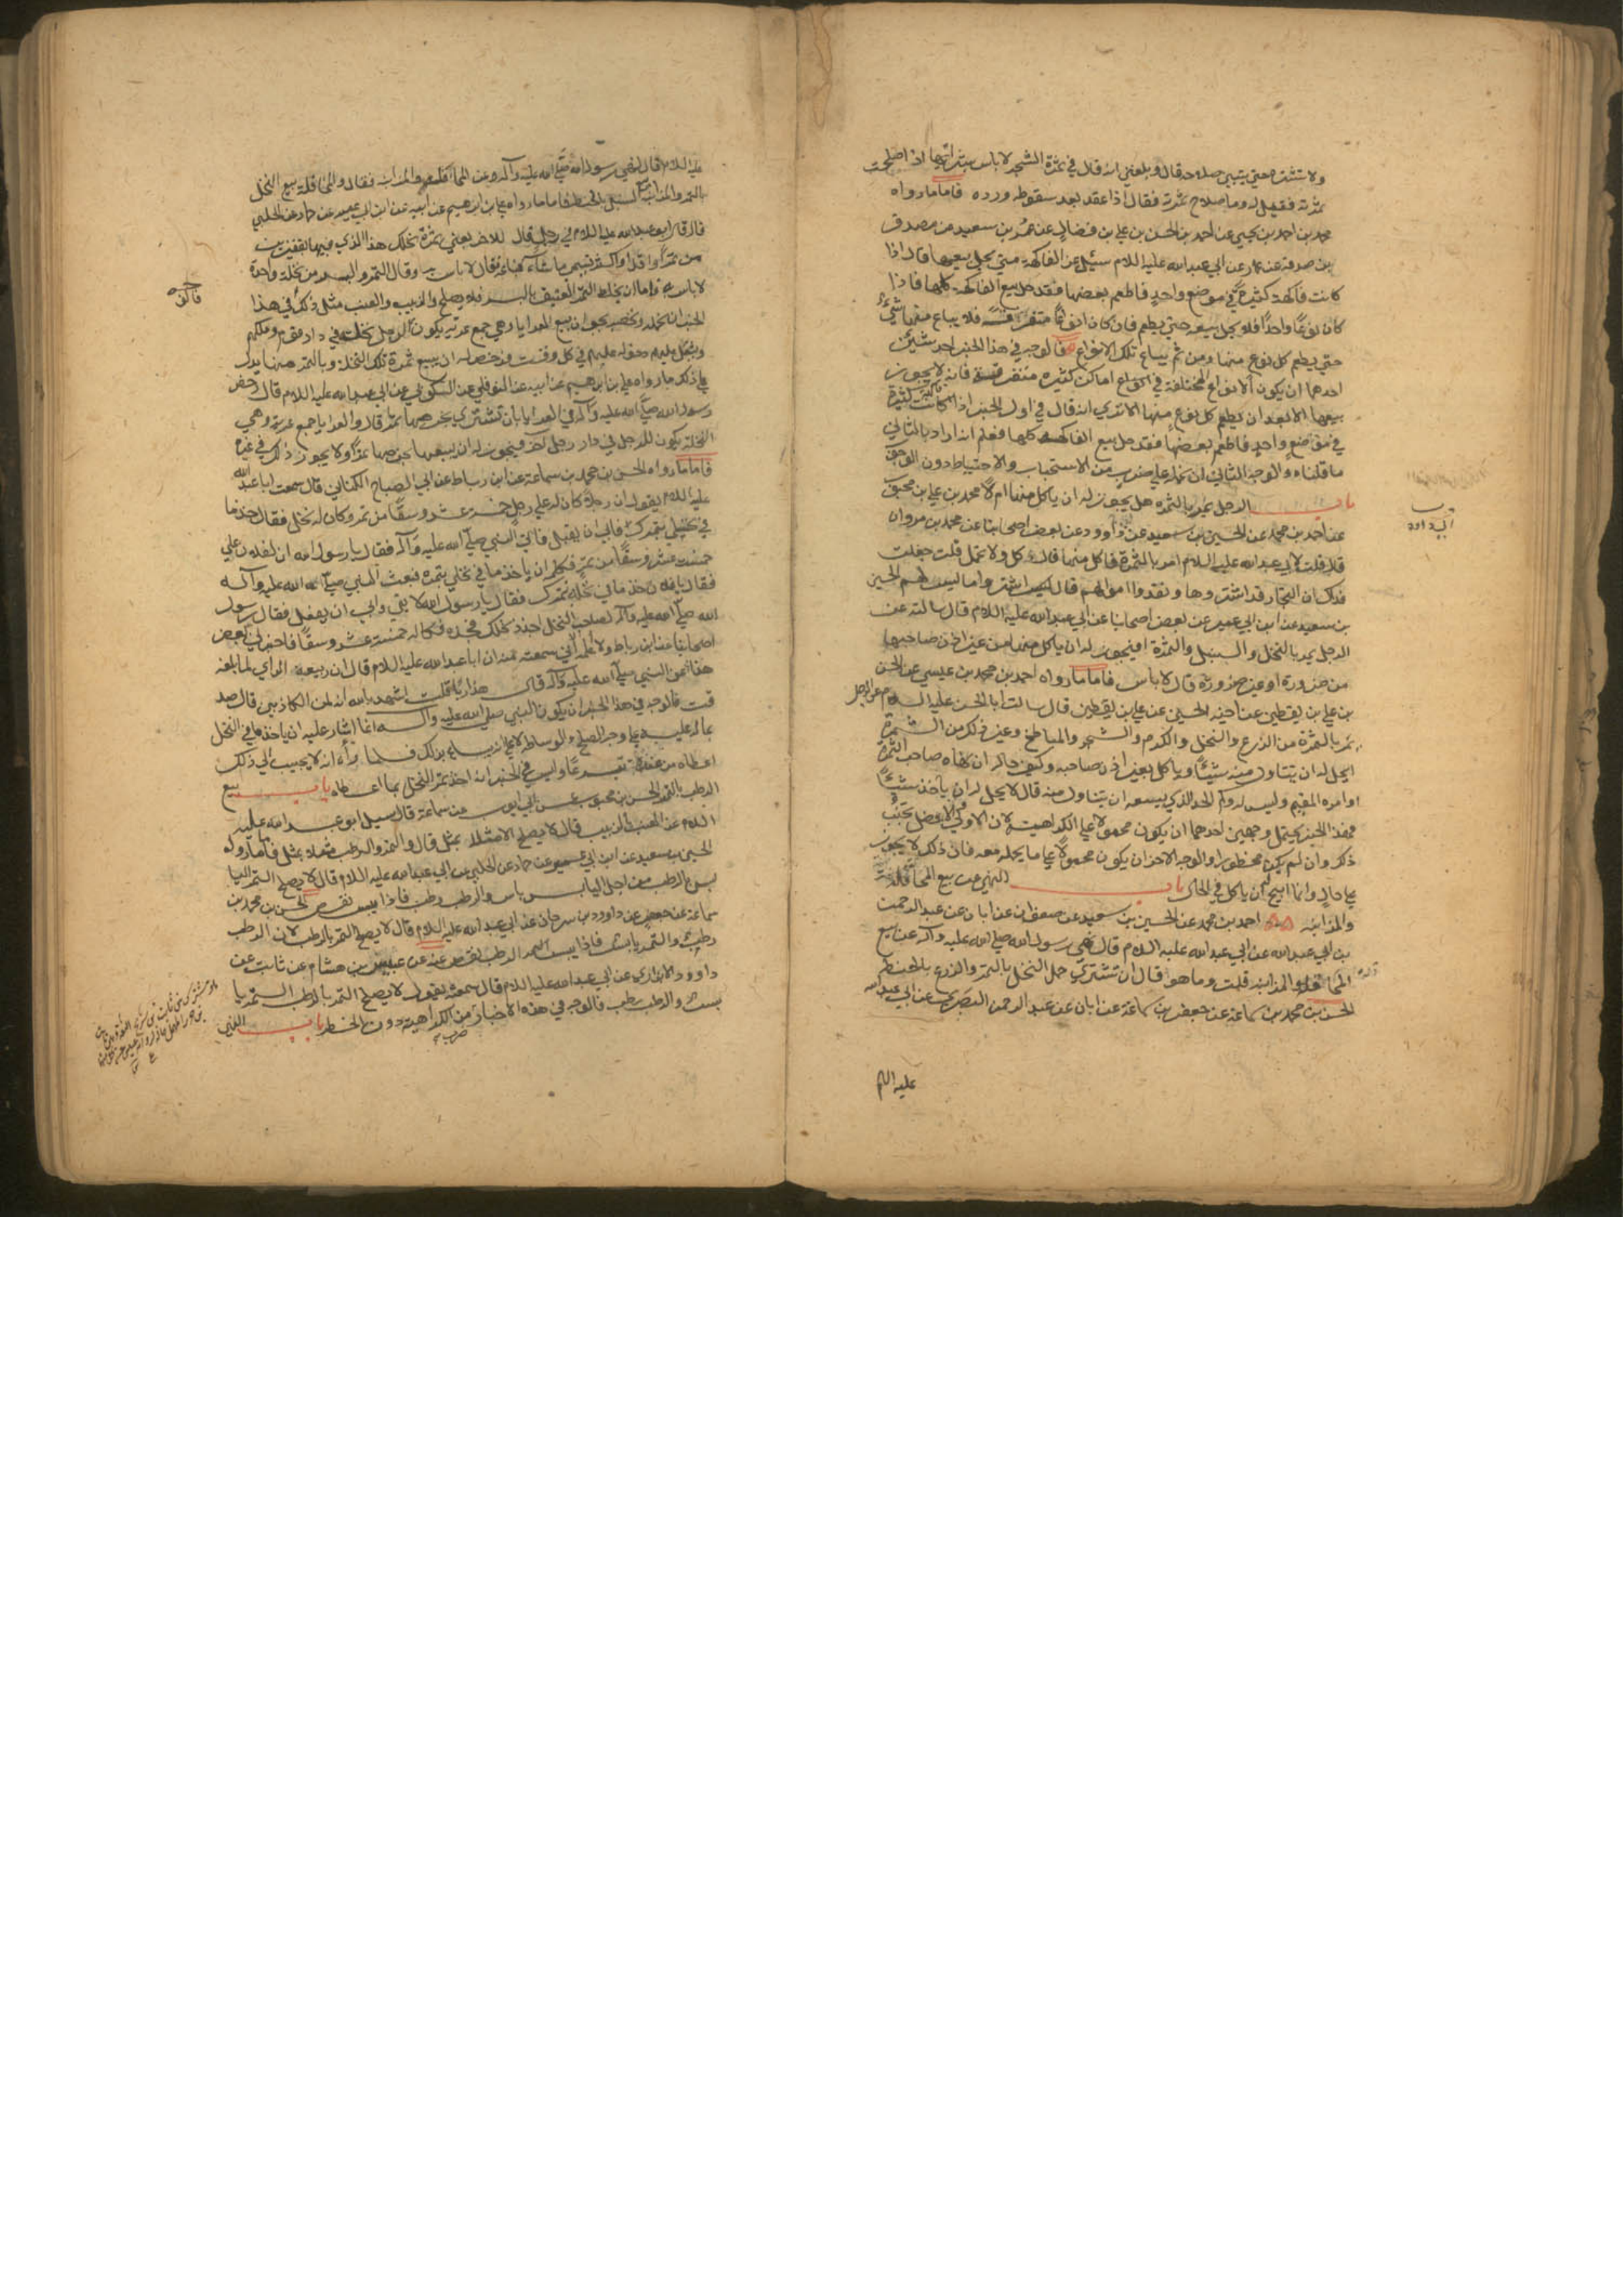 ولا تشتر حتي يتبين صلاحه قال وبلغني انه قال في ثمرة الشجر لا باس بشرائها اذا صلحت
ثمرته فقيل له وما صلاح ثمرته فقال اذا عقد بعد سقوط ورده فاما ما رواه
محمد بن احمد بن يحيي عن احمد بن الحسن بن علي بن فضال عن عمرو بن سعيد عن مصدق
بن صدقة عن عمار عن ابي عبد الله عليه السلام سئل عن الفاكهة متي يحل بيعها قال اذا
كانت فاكهة كثيرة في موضع واحد فاطعم بعضها فقد حل بيع الفاكهة كلها فاذا
كان نوعًا واحدًا فلا يحل بيعه حتي يطعم فان كان انواعًا متفرقة فلا يباع منها شئ
حتي يطعم كل نوع منها ومن ثم يباع تلك الانواع فالوجه في هذا الخبر احد شيئين
احدهما ان يكون الانواع المختلفة في اماكن كثيره متفرقة فانه لا يجوز
بيعها الا بعد ان يطعم كل نوع منها الا تري انه قال في اول الخبر اذا كانت كثيرة
في موضع واحد فاطعم بعضها فقد حل بيع الفاكهة كلها فعلم انه اراد بالثاني
ما قلناه والوجه الثاني ان نحمله علي ضرب من الاستحباب والاحتياط دون الوجوب
باب الرجل يمر بالثمره هل يجوز له ان ياكل منها ام لا محمد بن علي بن محبوب
عن احمد بن محمد عن الحسين بن سعيد عن داوود عن بعض اصحابنا عن محمد بن مروان
قال قلت لابي عبد الله عليه السلام امر بالثمرة فاكل منها قال كل ولا تحمل قلت جعلت
فداك ان التجار قد اشتروها ونقدوا اموالهم قال اشتروا ما ليس لهم الحسين
بن سعيد عن ابن ابي عمير عن بعض اصحابنا عن ابي عبد الله عليه السلام قال سالته عن
الرجل يمر بالنخل والسنبل والثمرة افيجوز له ان ياكل منها من غير اذن صاحبها
من ضرورة او غير ضرورة قال لا باس فاما ما رواه احمد بن محمد بن عيسي عن الحسن
بن علي بن يقطين عن اخيه الحسين عن علي بن يقطين قال سالت ابا الحسن عليه السلام عن الرجل
يمر بالثمرة من الزرع والنخل والكرم والشجر والمباطخ وغير ذلك من الثمرة
ايحل له ان يتناول منه شيئًا وياكل بغير اذن صاحبه وكيف حاله ان نهاه صاحب الثمرة
او امره القيم وليس له وكم الحد الذي يسعه ان يتناول منه قال لا يحل له ان ياخذ شيئًا
فهذا الخبر يحتمل وجهين احدهما ان يكون محمولا علي الكراهية لان الاولي والافضل تجنب
ذكر وان لم يكن محظورا والوجه الاخر ان يكون محمولًا علي ما يحمله معه فان ذلك لا يجوز
علي حال وانما ابيح له ان ياكل في الحال باب النهي عن بيع المحاقلة
والمزابنه احمد بن محمد عن الحسين بن سعيد عن صفوان عن ابان عن عبد الرحمن
بن ابي عبد الله عن ابي عبد الله عليه السلام قال نهي رسول الله صلي الله عليه وآله عن بيع
المحاقلة والمزابنة قلت وما هو قال ان تشتري حمل النخل بالتمر والزرع بالحنطة
الحسن بن محمد بن سماعة عن جعفر بن سماعة عن ابان عن عبد الرحمن البصري عن ابي عبد الله
عليه السلام
عليه السلام قال نهي رسول الله صلي الله عليه وآله عن المحاقلة والمزابنة فقال والمحاقلة بيع النخل
بالتمر والمزابنة السنبل بالحنطة فاما ما رواه علي بن ابرهيم عن ابيه عن ابن ابي عمير عن حماد عن الحلبي
قال قال ابو عبد الله عليه السلام في رجل قال للاخر بعني ثمرة نخلك هذا الذي فيها بقفيزين
من تمر او اقل او اكثر يسمي ما شاء فباعه فقال لا باس به وقال التمر والبسر من نخلة واحدة
لا باس به فاما ان يخلط التمر العتيق بالبسر فلا يصلح والزبيب والعنب مثل ذلك في هذا
الخبر ان نحمله ونخصه بجواز بيع العرايا وهي جمع عرية يكون لرجل نخلة في دار قوم وملكهم
ويثقل عليهم دخوله عليهم في كل وقت ورخص له ان يبيع ثمرة تلك النخلة وبالتمر منها يدل
علي ذلك ما رواه علي بن ابرهيم عن ابيه عن النوفلي عن السكوني عن ابي عبد الله عليه السلام قال رخص
رسول الله صلي الله عليه وآله في العرايا بان تشتري بخرصها تمرًا قال والعرايا جمع عرية وهي
النخلة يكون للرجل في دار رجل آخر فيجوز له ان يبيعها بخرصها تمرًا ولا يجوز ذلك في غيره
فاما ما رواه الحسن بن محمد بن سماعة عن ابن رباط عن ابي الصباح الكناني قال سمعت ابا عبد الله
عليه السلام يقول ان رجلا كان له علي رجل خمسة عشر وسقًا من تمر وكان له نخل فقال خذ ما
في نخلي بتمرك فابي ان يقبل فاتي النبي صلي الله عليه وآله فقال يا رسول الله ان لفلان علي
خمسة عشر وسقًا من تمر فكلمه ان ياخذ ما في نخلي بتمره فبعث النبي صلي الله عليه وآله
فقال يا فلان خذ ما في نخله بتمرك فقال يا رسول الله لا يفي وابي ان يفعل فقال رسول
الله صلي الله عليه وآله لصاحب النخل اجذذ نخلك فجذه فكاله خمسة عشر وسقًا فاخبرني بعض
اصحابنا عن ابن رباط ولا اعلمه الا اني سمعته منه ان ابا عبد الله عليه السلام قال ان ربيعة الراي لما بلغه
هذا عن النبي صلي الله عليه وآله قال هذا ربًا قلت اشهد بالله انه لمن الكاذبين قال صد
قت فالوجه في هذا الخبر ان يكون النبي صلي الله عليه وآله انما اشار عليه ان ياخذ ما في النخل
بماله عليه علي وجه الصلح والوساطة لا علي انه يسلم بذلك فلما رأى انه لا يجيب الي ذلك
اعطاه من عنده تبرعًا وليس في الخبر انه اخذ تمر النخل بما اعطاه باب بيع
الرطب بالتمر الحسن بن محبوب عن ابي ايوب عن سماعة قال سئل ابو عبد الله عليه
السلام عن العنب بالزبيب قال لا يصلح الا مثلا بمثل قال والتمر والرطب مثلا بمثل فاما ما رواه
الحسين بن سعيد عن ابن ابي عمير عن حماد عن الحلبي عن ابي عبد الله عليه السلام قال لا يصلح التمر اليا
بس بالرطب من اجل ان اليابس يابس والرطب رطب فاذا يبس نقص الحسن بن محمد بن
سماعة عن جعفر عن داوود بن سرحان عن ابي عبد الله عليه السلام قال لا يصلح التمر بالرطب لان الرطب
رطب والتمر يابس فاذا يبس الرطب نقص عنه عن عبيس بن هشام عن ثابت عن
داوود الابزاري عن ابي عبد الله عليه السلام قال سمعته يقول لا يصلح التمر بالرطب التمر يا
بس والرطب رطب فالوجه في هذه الاخبار ضرب من الكراهية دون الحظر باب النهي